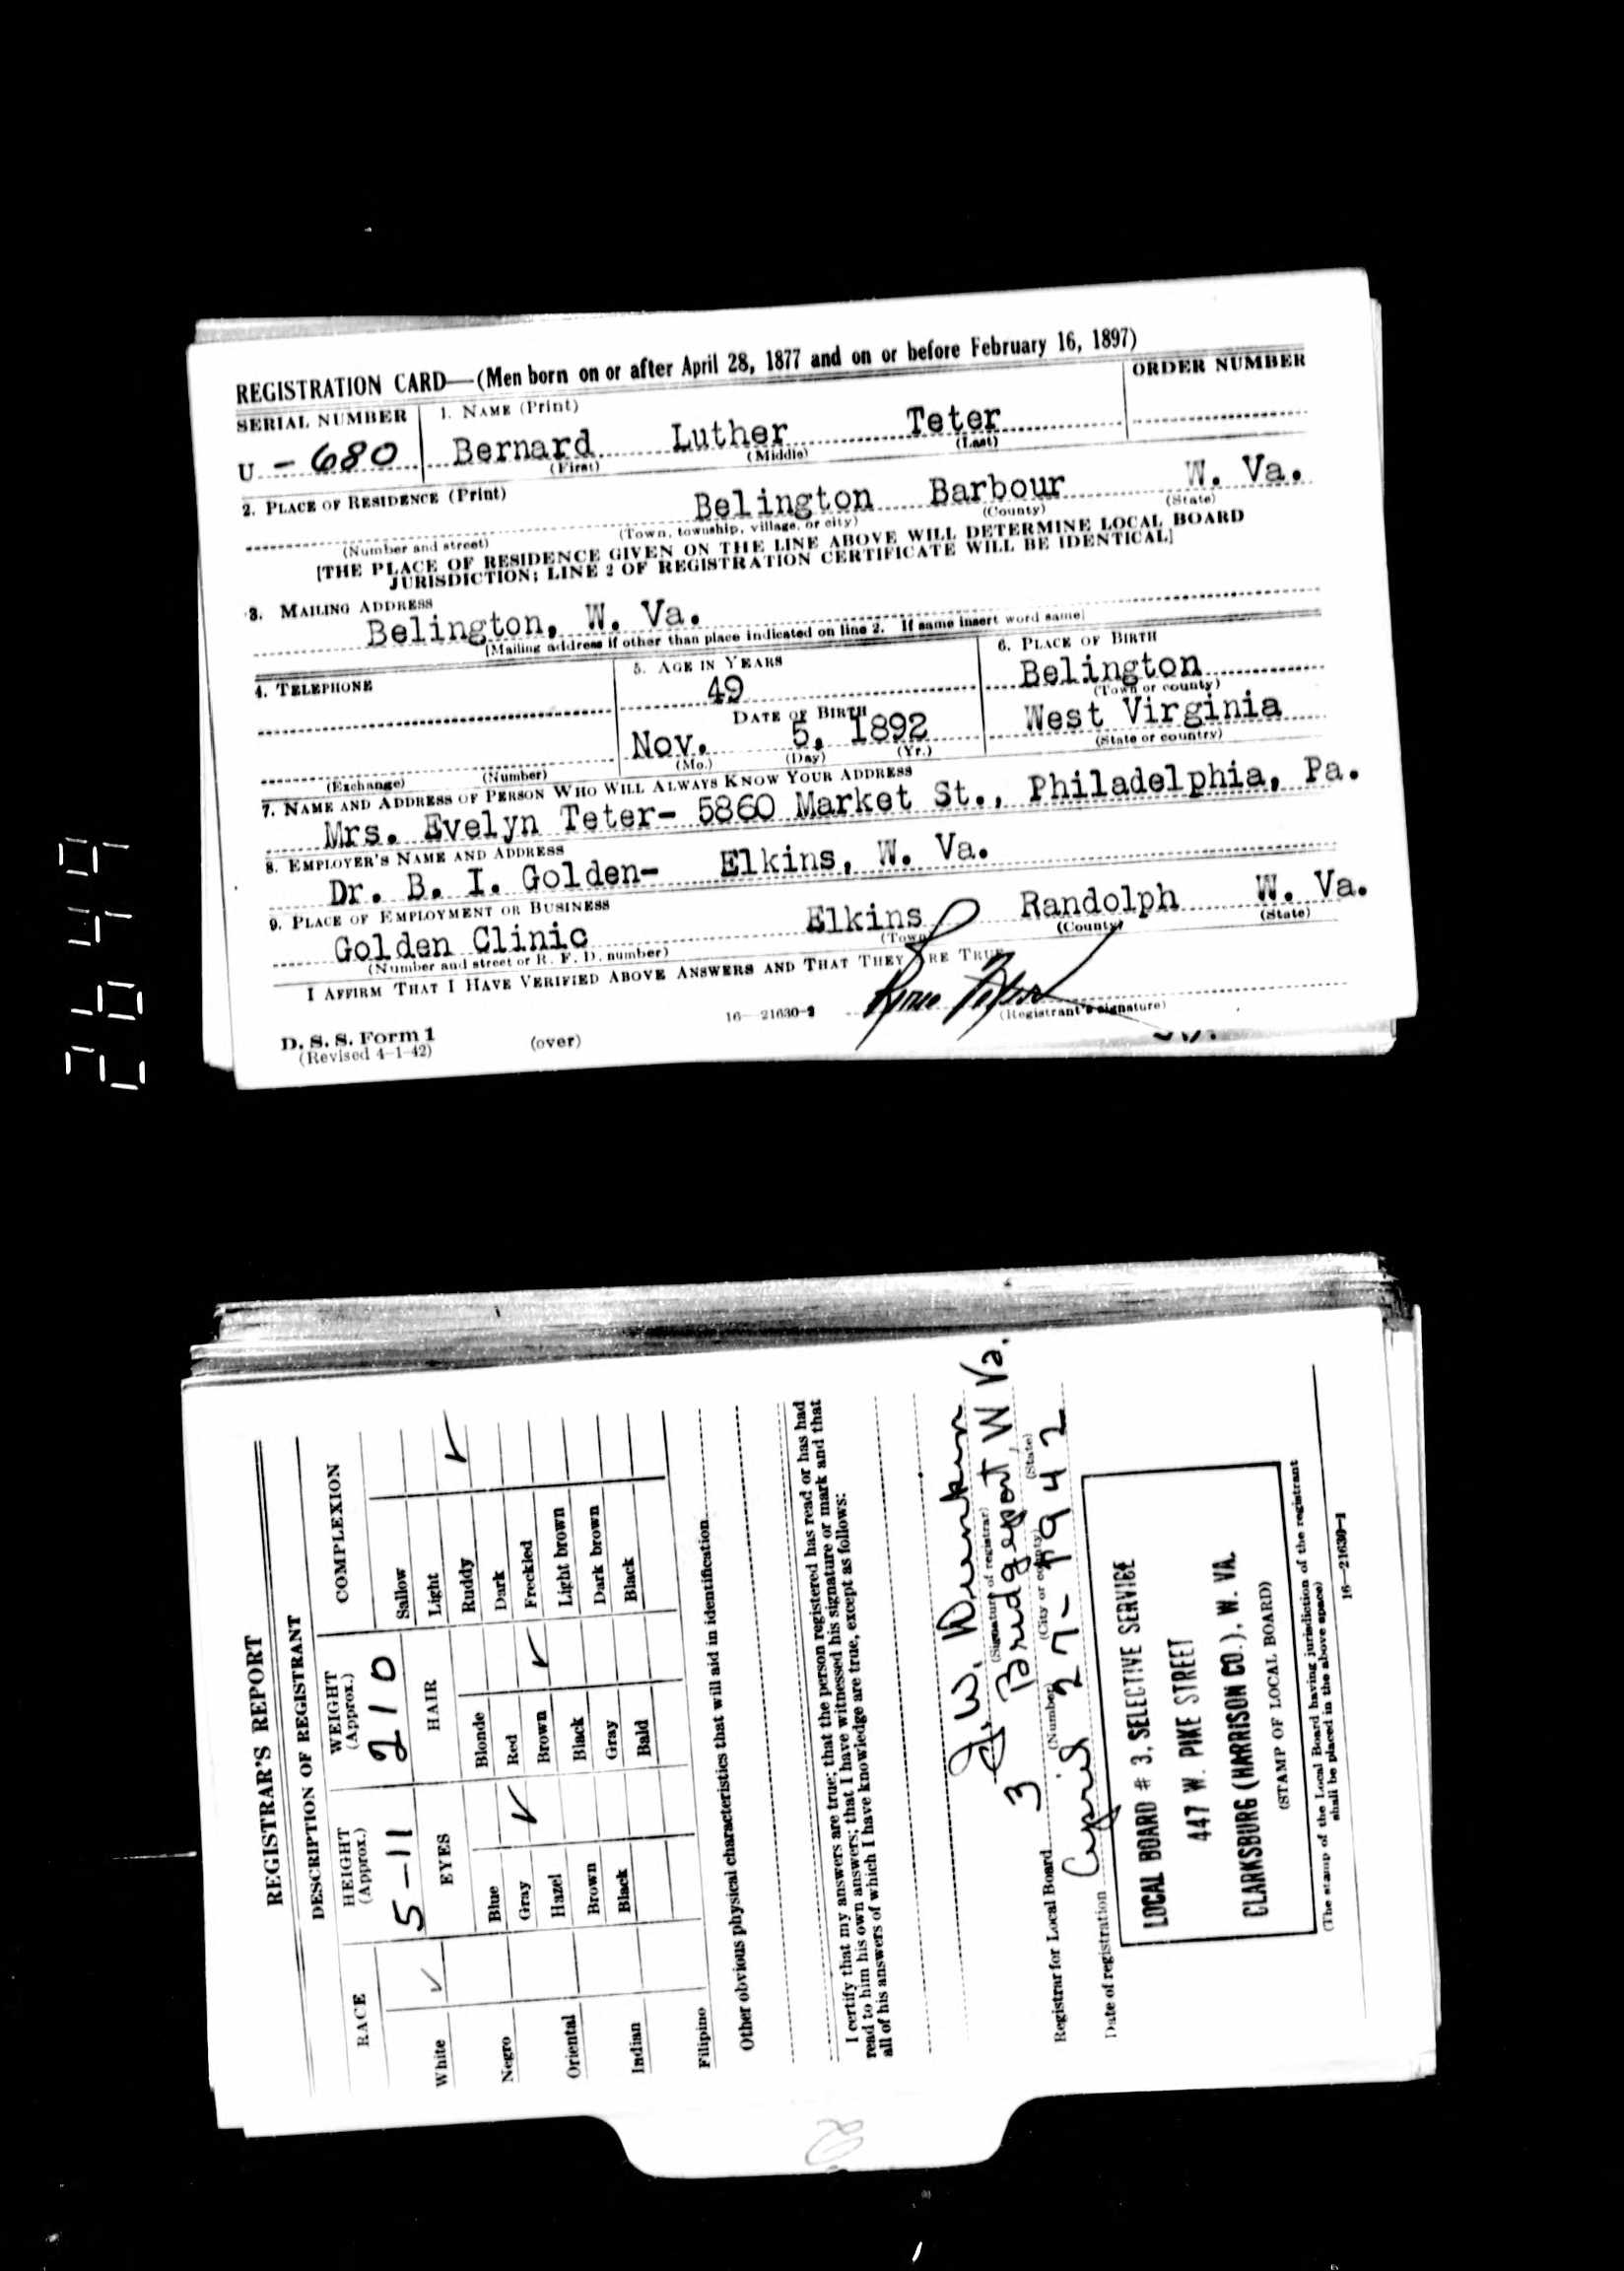 REGISTRATION CARD—(Men born on or after April 28, 1877 and on or before February 16, 1897)
SERIAL NUMBER
1. NAME (Print)
ORDER NUMBER
U - 680
Bernard Luther Teter
(First) (Middle) (Last)
2. PLACE OF RESIDENCE (Print)
Belington Barbour W. Va.
(Number and street) (Town, township, village, or city) (County) (State)
[THE PLACE OF RESIDENCE GIVEN ON THE LINE ABOVE WILL DETERMINE LOCAL BOARD
JURISDICTION; LINE 2 OF REGISTRATION CERTIFICATE WILL BE IDENTICAL]
3. MAILING ADDRESS
Belington, W. Va.
[Mailing address if other than place indicated on line 2. If same insert word same]
4. TELEPHONE
(Exchange) (Number)
5. AGE IN YEARS
49
DATE OF BIRTH
Nov. 5, 1892
(Mo.) (Day) (Yr.)
6. PLACE OF BIRTH
Belington
(Town or county)
West Virginia
(State or country)
7. NAME AND ADDRESS OF PERSON WHO WILL ALWAYS KNOW YOUR ADDRESS
Mrs. Evelyn Teter- 5860 Market St., Philadelphia, Pa.
8. EMPLOYER'S NAME AND ADDRESS
Dr. B. I. Golden- Elkins, W. Va.
9. PLACE OF EMPLOYMENT OR BUSINESS
Golden Clinic Elkins Randolph W. Va.
(Number and street or R. F. D. number) (Town) (County) (State)
I AFFIRM THAT I HAVE VERIFIED ABOVE ANSWERS AND THAT THEY ARE TRUE.
D. S. S. Form 1
(Revised 4-1-42)
(over)
16—21630-2
(Registrant's signature)
2649
REGISTRAR'S REPORT
DESCRIPTION OF REGISTRANT
RACE
HEIGHT
(Approx.)
WEIGHT
(Approx.)
COMPLEXION
5-11
210
White ✓
Negro
Oriental
Indian
Filipino
EYES
Blue
Gray ✓
Hazel
Brown
Black
HAIR
Blonde
Red
Brown ✓
Black
Gray
Bald
Sallow
Light
Ruddy ✓
Dark
Freckled
Light brown
Dark brown
Black
Other obvious physical characteristics that will aid in identification
I certify that my answers are true; that the person registered has read or has had
read to him his own answers; that I have witnessed his signature or mark and that
all of his answers of which I have knowledge are true, except as follows:
(Signature of registrar)
Registrar for Local Board 3 Bridgeport W Va.
(Number) (City or county) (State)
Date of registration April 27-1942
LOCAL BOARD # 3, SELECTIVE SERVICE
447 W. PIKE STREET
CLARKSBURG (HARRISON CO.), W. VA.
(STAMP OF LOCAL BOARD)
(The stamp of the Local Board having jurisdiction of the registrant
shall be placed in the above space)
16—21630-1
2